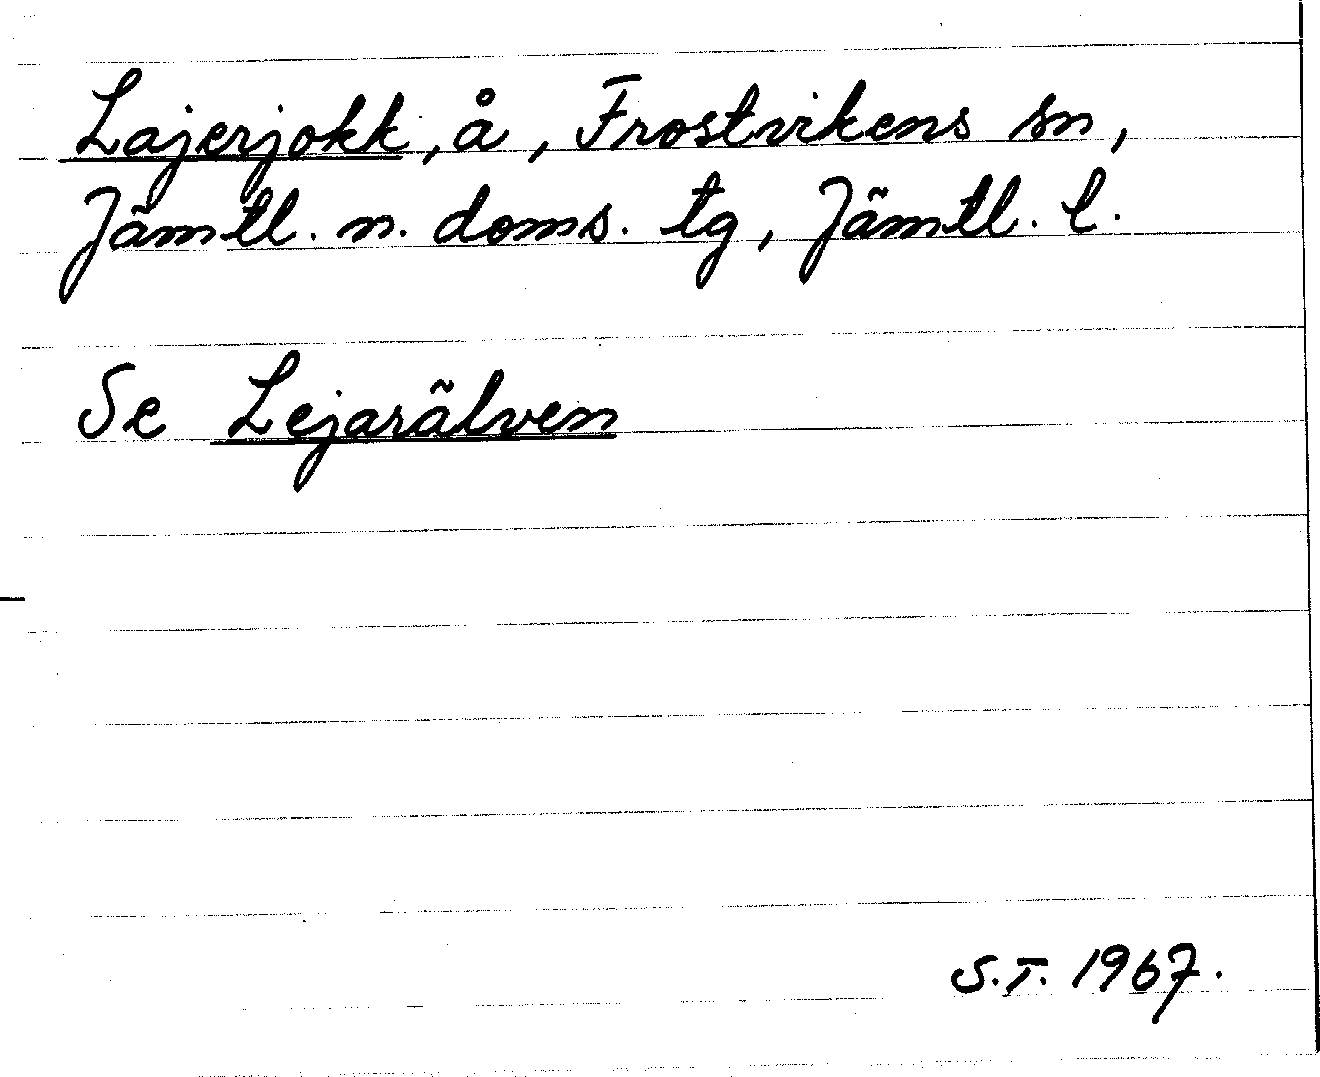 Lajerjokk, å, Frostvikens sn,
Jämtl. n. doms. tg, Jämtl. l.
Se Lejarälven
S.T. 1967.